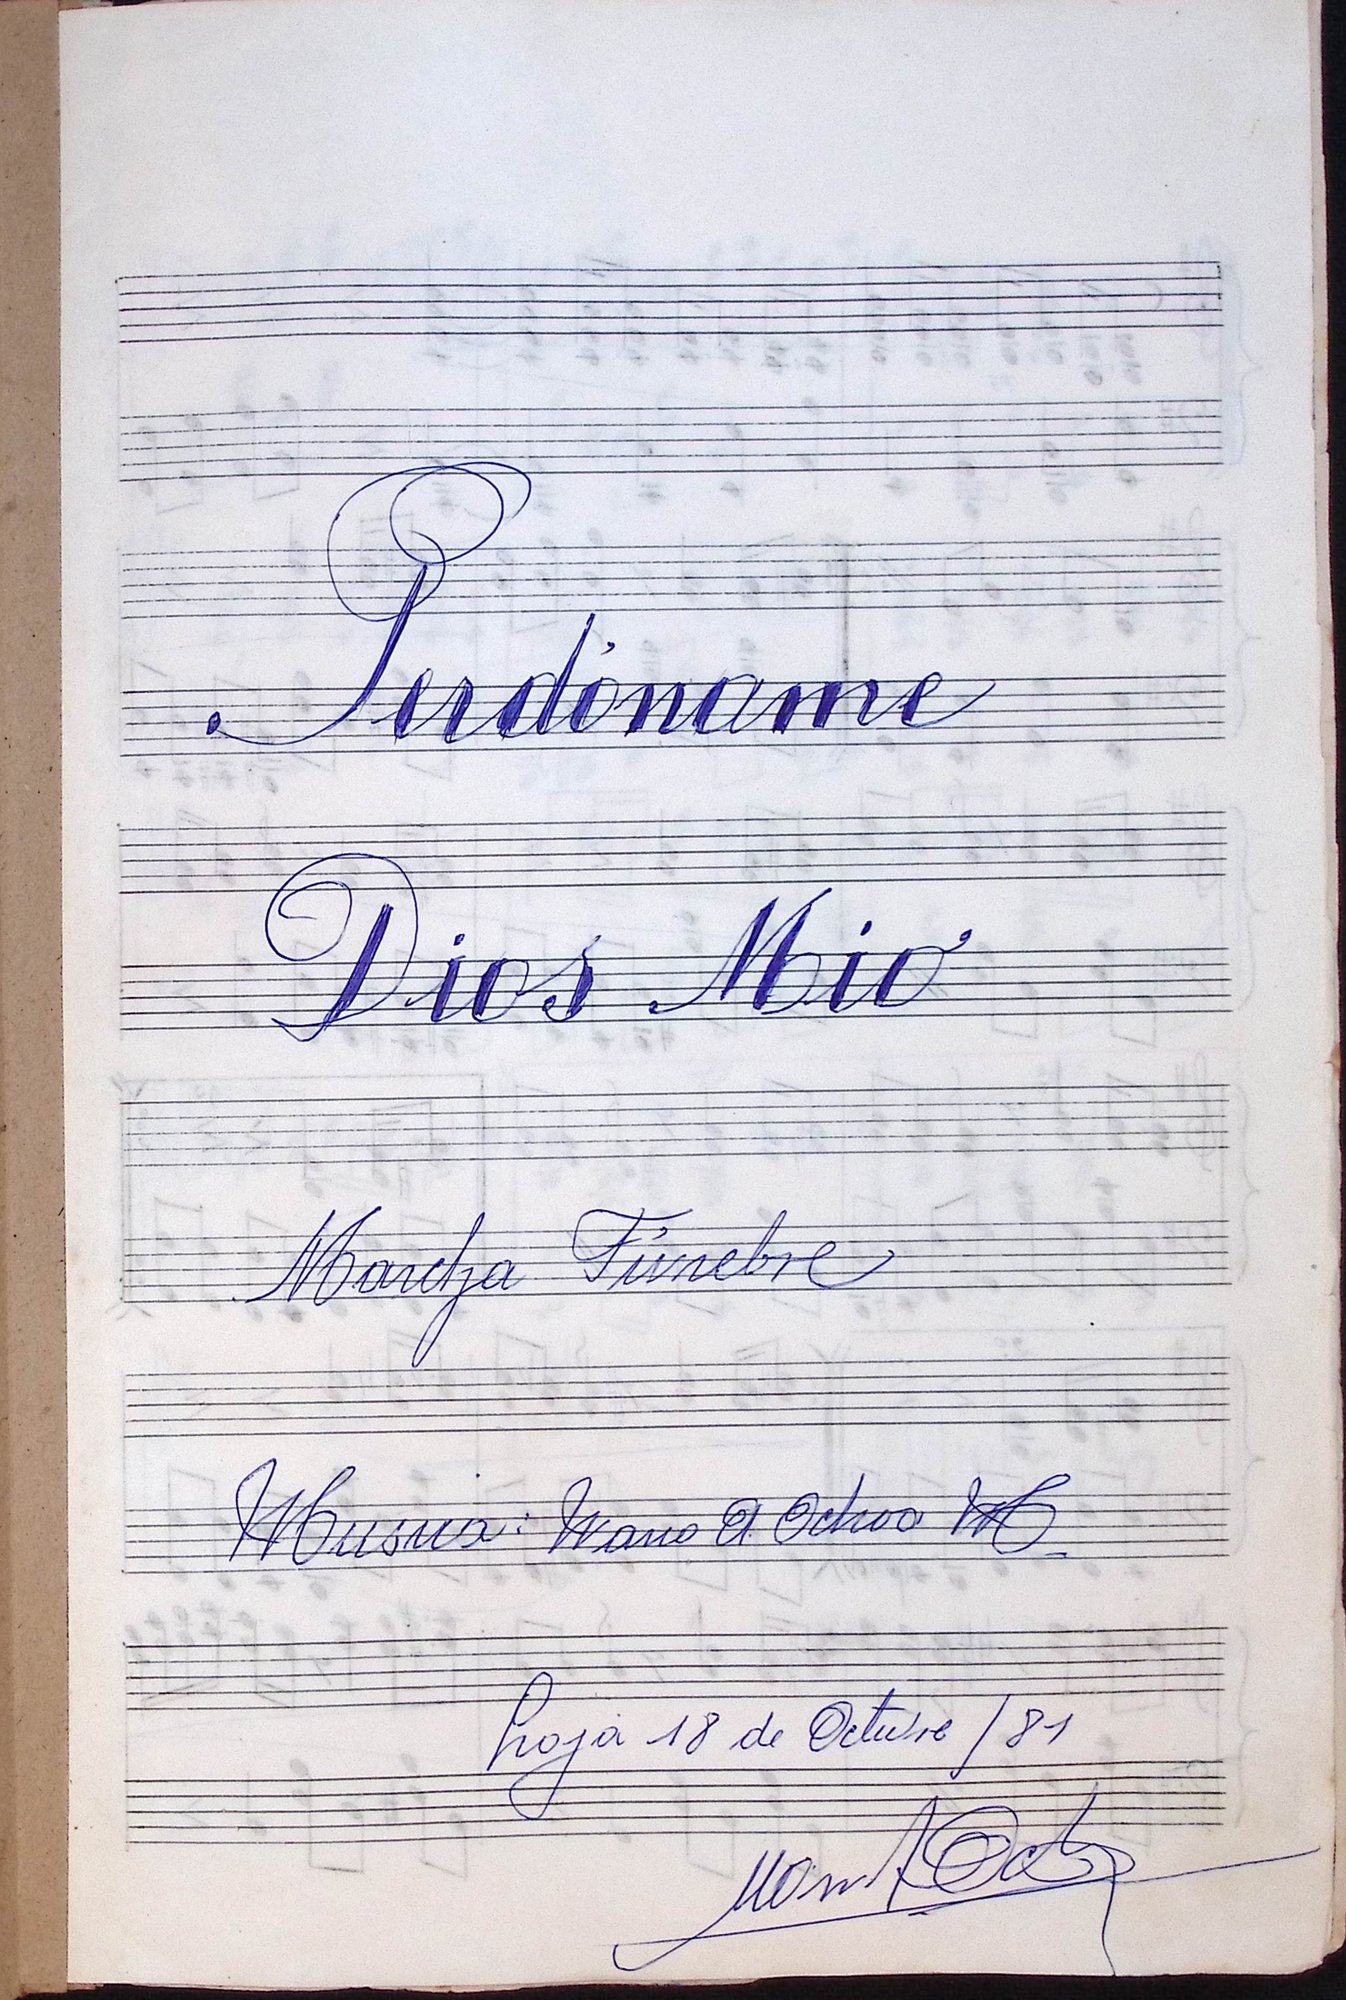 Perdóname
Dios Mió
Marcha Fúnebre
Musica: Mario A Ochoa M
Loja 18 de Octubre / 81